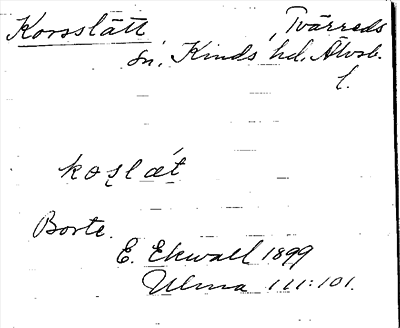 Korsslätt, Tvärreds
sn, Kinds hd, Älvsb.
l.
koʂlæt
Borte.
E. Ekwall 1899
Ulma 111:101.